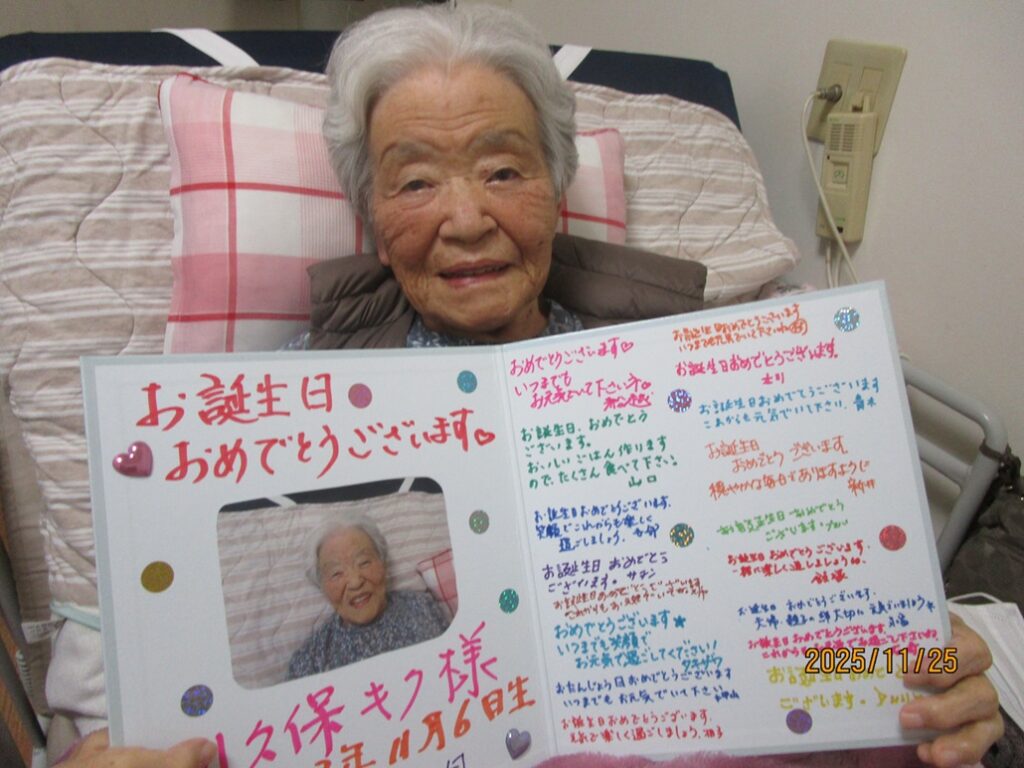 お誕生日
おめでとうございます
久保 キク 様
年 11月 6日生
おめでとうございます
いつまでも
お元気でいて下さいネ
お誕生日、おめでとう
ございます。
おいしいごはん作ります
ので、たくさん食べて下さい。
山口
お誕生日おめでとうございます。
笑顔でこれからも楽しく
過ごしましょう。
お誕生日 おめでとう
ございます。
お誕生日おめでとうございます
これからも
おめでとうございます
いつまでも笑顔で
お元気で過ごしてください!
タキザワ
おたんじょう日おめでとうございます
いつまでも お元気でいて下さい
お誕生日おめでとうございます。
元気で楽しく過ごしましょう。
お誕生日おめでとうございます
いつまでも元気でいて下さいね
お誕生日おめでとうございます。
お誕生日おめでとうございます
これからも元気でいて下さい。青木
お誕生日
おめでとう ございます。
穏やかな毎日でありますように
新井
お誕生日 おめでとう
ございます。
お誕生日 おめでとうございます。
一緒に楽しく過しましょうね。
お誕生日 おめでとうございます。
お誕生日おめでとうございます。
お誕生日おめでとう
ございます。
2025/11/25